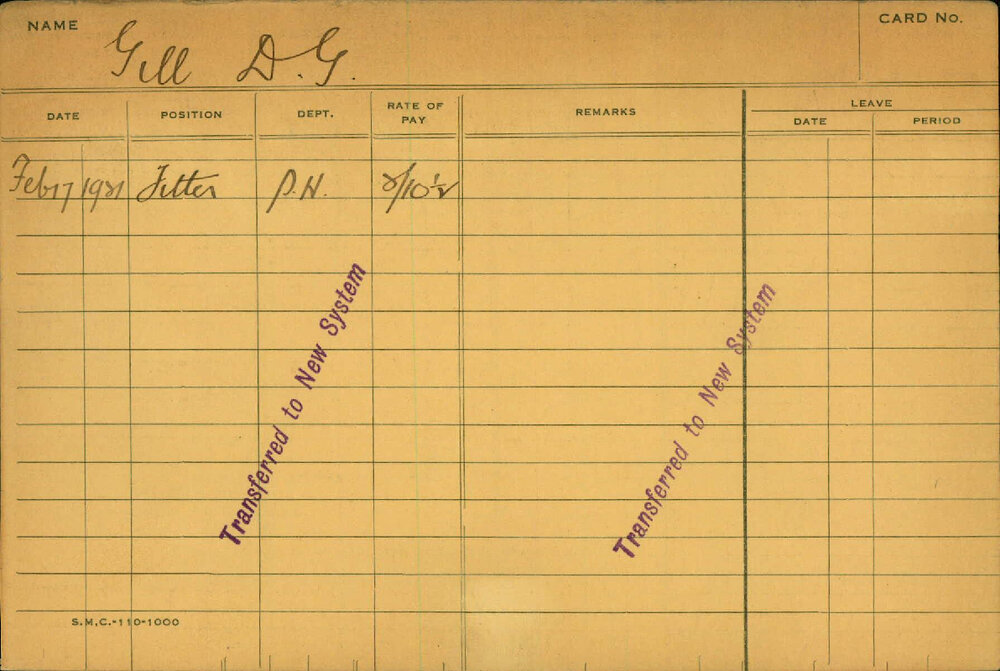 NAME Gill D.G. CARD No.
DATE POSITION DEPT. RATE OF PAY REMARKS LEAVE
DATE PERIOD
Feb 17 1921 Fitter P.H. 2/10½
Transferred to New System
Transferred to New System
S.M.C.-110-1000